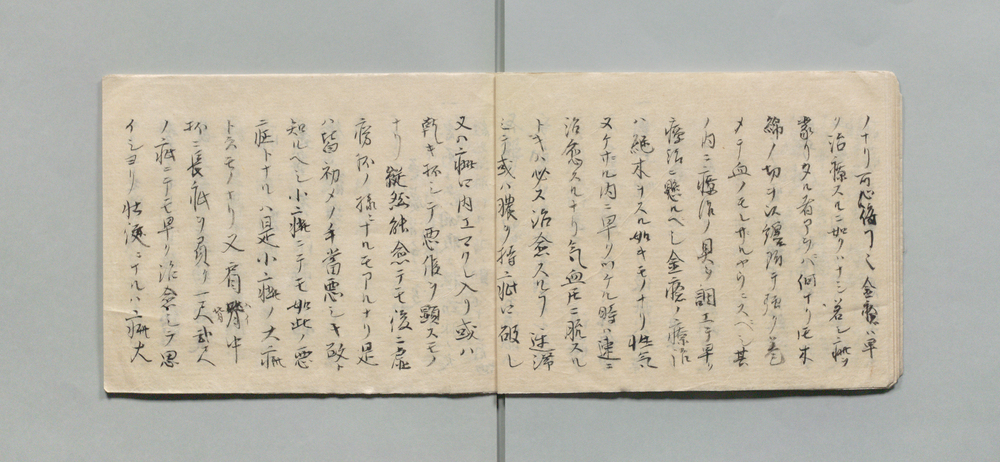 ノナリ可恐後日ノ  金瘡ハ早
ク治療スルニ如クハナシ若シ疵ヲ
蒙リタル者アラバ何ナリ𪜈木
綿ノ切ヲ以テ強ク巻
メテ血ノモレサルヤウニスベシ其
ノ内ニ療治ノ具ヲ調エテ早ク
療治ニ懸ルヘシ金瘡ノ療治
ハ継木ヲスル如キモノナリ性気ノ
ヌケホル内ニ早クツケル時ハ速ニ
治愈スルナリ気血𪜈ニ脱スル
トキハ必ス治愈スルヿ遅滞
シテ或ハ膿ヲ持疵口破レ
又ハ疵口内エマクレ入リ或ハ
乾キ杯シテ悪候ヲ顕スモノ
ナリ  縦然能愈テモ後ニ虚
病ノ様ニナルモアルナリ是
ハ皆初メノ手當悪シキ故ト
知ルヘシ小疵ニテモ如此ノ悪
症トナルハ是小疵ノ大疵
トスモノナリ又肩臂中
杯ニ長疵ヲ負リ一尺貳尺
ノ疵ニテモ早ク治愈シテ思
イシヨリ壮健ニナルハ疵大